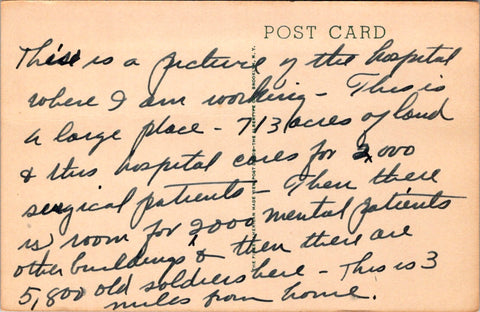 POST CARD
This is a picture of the hospital
where I am working - This is
a large place - 713 acres of land
& this hospital cares for 2,000
surgical patients - Then there
is room for 2000 mental patients
other buildings & then there are
5,800 old soldiers here - This is 3
miles from home.